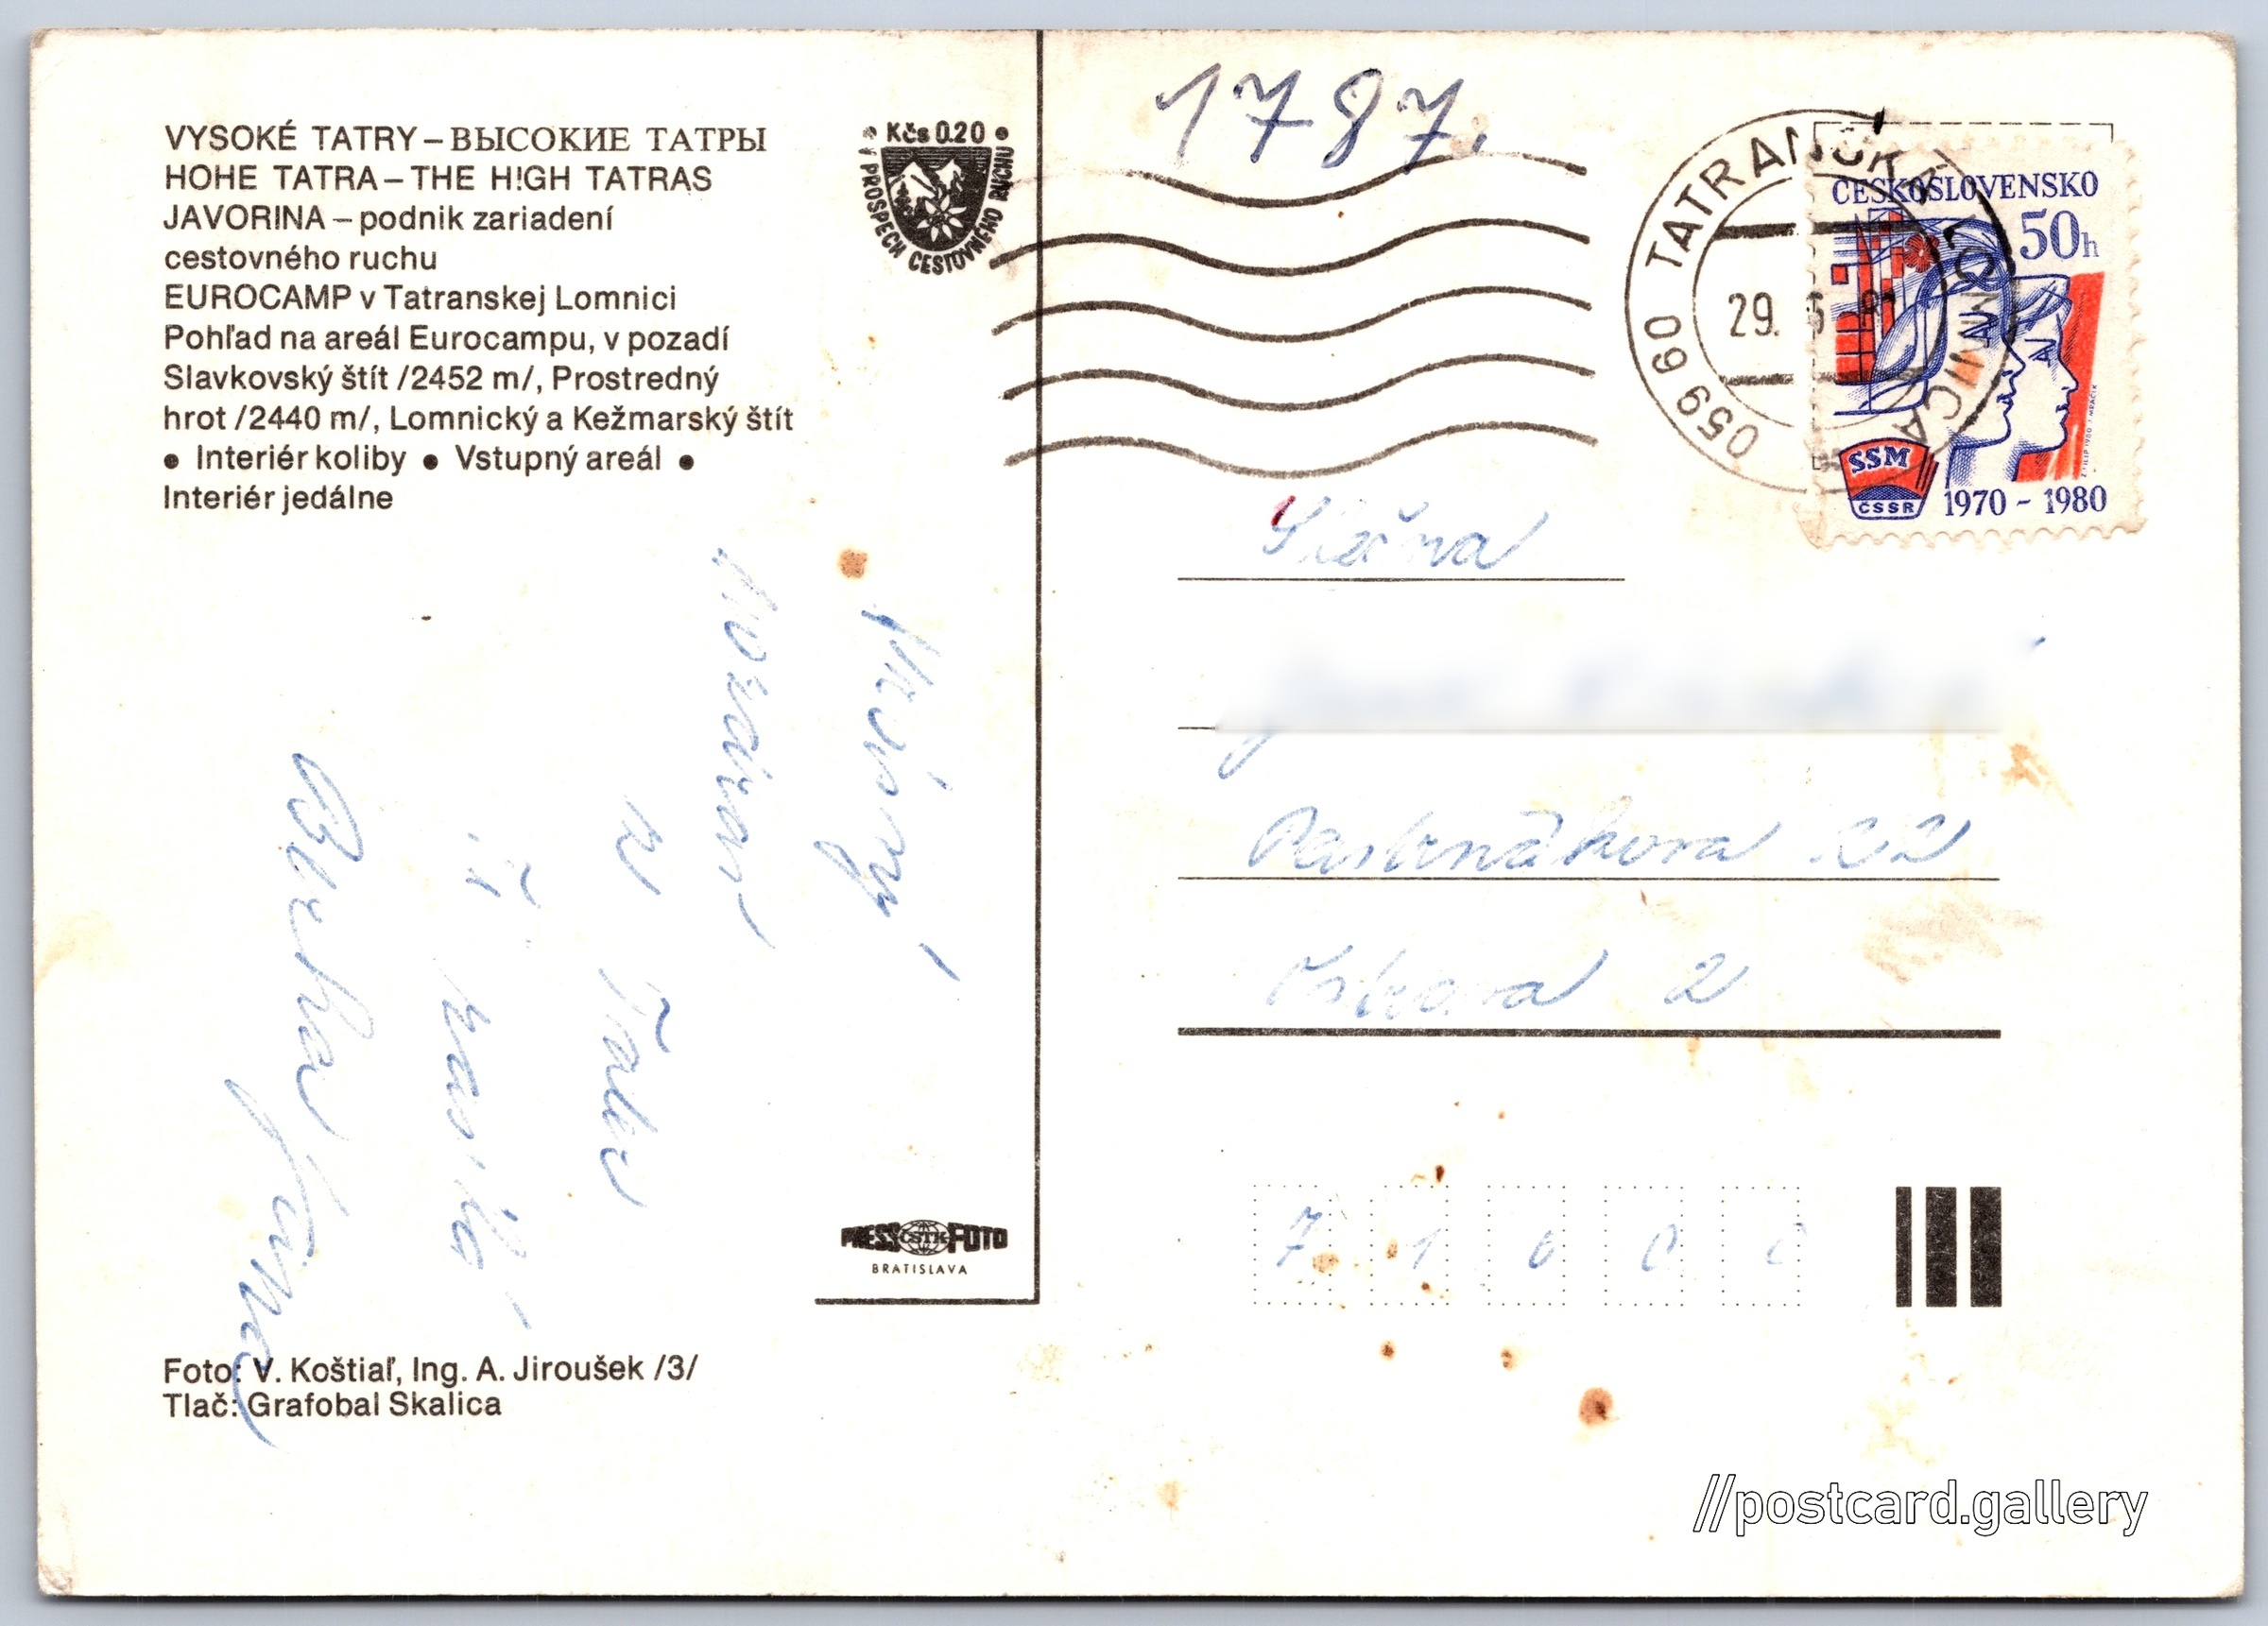 VYSOKÉ TATRY – ВЫСОКИЕ ТАТРЫ
HOHE TATRA – THE HIGH TATRAS
JAVORINA – podnik zariadení
cestovného ruchu
EUROCAMP v Tatranskej Lomnici
Pohľad na areál Eurocampu, v pozadí
Slavkovský štít /2452 m/, Prostredný
hrot /2440 m/, Lomnický a Kežmarský štít
● Interiér koliby ● Vstupný areál ●
Interiér jedálne
● Kčs 0.20 ●
V PROSPECH CESTOVNÉHO RUCHU
pozdrav
z Tater
Ti
Foto: V. Koštiaľ, Ing. A. Jiroušek /3/
Tlač: Grafobal Skalica
PRESS ČSTK FOTO
BRATISLAVA
1787.
059 60 TATRANSKÁ LOMNICA
29. 6
ČESKOSLOVENSKO
50h
SSM
ČSSR
1970 – 1980
22
Ostrava 2
7 1 0 0 0
//postcard.gallery